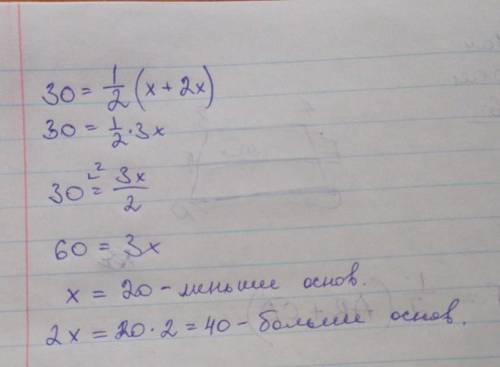 30 = 1/2 (x + 2x)
30 = 1/2 · 3x
30 = 3x/2
60 = 3x
x = 20 - меньшее основ.
2x = 20 · 2 = 40 - больше основ.